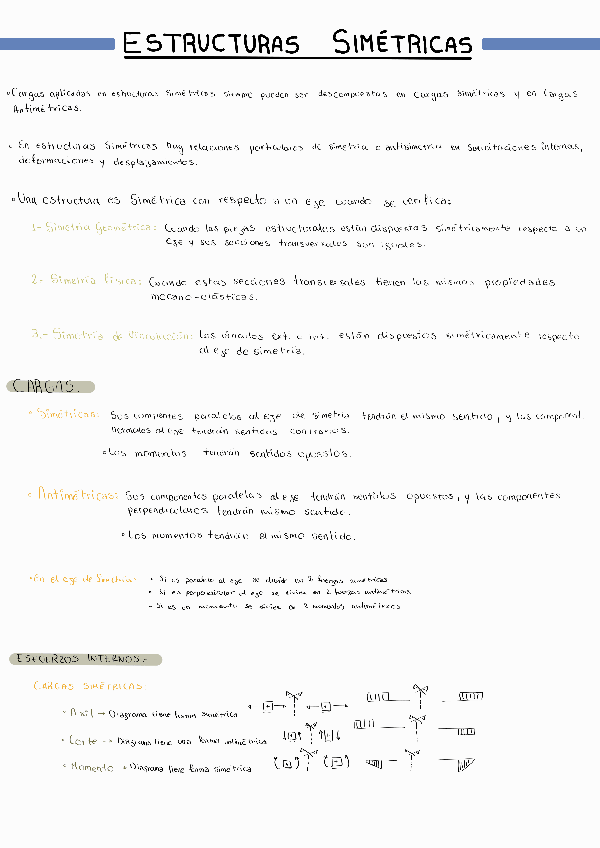 ESTRUCTURAS SIMÉTRICAS
• Cargas aplicadas en estructuras simétricas siempre pueden ser descompuestas en cargas simétricas y en cargas
Antimétricas.
• En estructuras simétricas hay relaciones particulares de simetría o antisimetría en solicitaciones internas,
deformaciones y desplazamientos.
• Una estructura es simétrica con respecto a un eje cuando se verifica:
1- Simetría Geométrica: Cuando las piezas estructurales están dispuestas simétricamente respecto a un
eje y sus secciones transversales son iguales.
2- Simetría Física: Cuando estas secciones transversales tienen las mismas propiedades
mecano-elásticas.
3.- Simetría de Vinculación: Los vínculos ext. e int. están dispuestos simétricamente respecto
al eje de simetría.
CARGAS.
• Simétricas: Sus componentes paralelas al eje de simetría tendrán el mismo sentido, y las component
normales al eje tendrán sentidos contrarios.
• Los momentos tendrán sentidos opuestos.
• Antimétricas: Sus componentes paralelas al eje tendrán sentidos opuestos, y las componentes
perpendiculares tendrán mismo sentido.
• Los momentos tendrán el mismo sentido.
• En el eje de Simetría: • Si es paralela al eje se divide en 2 fuerzas simétricas
• Si es perpendicular al eje se divide en 2 fuerzas antimétricas
- Si es un momento se divide en 2 momentos antimétricos
ESFUERZOS INTERNOS.-
CARGAS SIMÉTRICAS
• Axil → Diagrama tiene forma simétrica
• Corte → Diagrama tiene una forma antimétrica
• Momento → Diagrama tiene forma simétrica